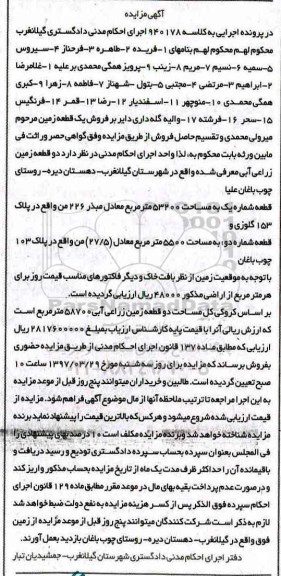 آگهی مزایده
در پرونده اجرایی به کلاسه ۹۴۰۱۷۸ اجرای احکام مدنی دادگستری گیلانغرب
محکوم لهم محکوم لهم بنامهای ۱-فریده ۲-طاهره ۳-فرحناز ۴-سیروس
۵-سمیه ۶-نسیم ۷-مریم ۸-زینب ۹-پرویز همگی محمدی بر علیه ۱-غلامرضا
۲-ابراهیم ۳-مرتضی ۴-مجتبی ۵-بتول -شهناز ۷-فاطمه ۸-زهرا ۹-کبری
همگی محمدی ۱۰-منوچهر ۱۱-اسفندیار ۱۲-رضا ۱۳-قمر ۱۴-فرنگیس
۱۵-سحر ۱۶-فرشته ۱۷-والیه گله داری دایر بر فروش یک قطعه زمین مرحوم
میرولی محمدی و تقسیم حاصل فروش از طریق مزایده وفق گواهی حصر وراثت فی
مابین ورثه بابت محکوم به، لذا واحد اجرای احکام مدنی در نظر دارد دو قطعه زمین
زراعی آبی معرفی شده واقع در شهرستان گیلانغرب- دهستان دیره- روستای
چوب باغان علیا
قطعه شماره یک به مساحت ۵۳۲۰۰ مترمربع معادل مبذر ۲۲۶ من واقع در پلاک
۱۵۳ گلوزی و
قطعه شماره دو: به مساحت ۵۵۰۰ مترمربع معادل (۲۷/۵) من واقع در پلاک ۱۰۳
چوب باغان
با توجه به موقعیت زمین از نظر بافت خاک و دیگر فاکتورهای مناسب قیمت روز برای
هر متر مربع از اراضی مذکور ۴۸۰۰۰ ریال ارزیابی گردیده است.
بر اساس کروکی کل مساحت دو قطعه زمین زراعی آبی ۵۸۷۰۰ مترمربع است
که ارزش ریالی آنرا با قیمت پایه کارشناس ارزیاب بمبلغ ۲۸۱۷۶۰۰۰۰۰ ریال
ارزیابی که مطابق ماده ۱۳۷ قانون اجرای احکام مدنی از طریق مزایده حضوری
بفروش برساند که مزایده برای روز سه شنبه مورخ ۱۳۹۷/۰۳/۲۹ ساعت ۱۰
صبح تعیین گردیده است. طالبین و خریداران میتوانند پنج روز قبل از موعد مزایده
به این اجرا مراجعه تا ترتیب ملاحظه آنها از مال موضوع آگهی فراهم شود. مزایده از
قیمت ارزیابی شده شروع میشود و هرکس که بالاترین قیمت را پیشنهاد نماید برنده
مزایده شناخته خواهد شد و برنده مزایده مکلف است ۱۰ درصد بهای پیشنهادی را
فی المجلس بعنوان سپرده بحساب سپرده دادگستری تودیع و رسید دریافت و
باقیمانده آن را حداکثر ظرف مدت یک ماه از تاریخ مزایده بحساب مذکور واریز کند
و در صورت عدم پرداخت بقیه بهای مال در موعد مقرر مطابق ماده ۱۲۹ قانون اجرای
احکام سپرده فوق الذکر پس از کسر هزینه مزایده به نفع دولت ضبط خواهد شد
لازم به ذکر است شرکت کنندگان میتوانند پنج روز قبل از موعد مزایده از زمین
فوق واقع در گیلانغرب- دهستان دیره- روستای چوب باغان بازدید بعمل آورند.
دفتر اجرای احکام مدنی دادگستری شهرستان گیلانغرب- جمشیدیان تبار